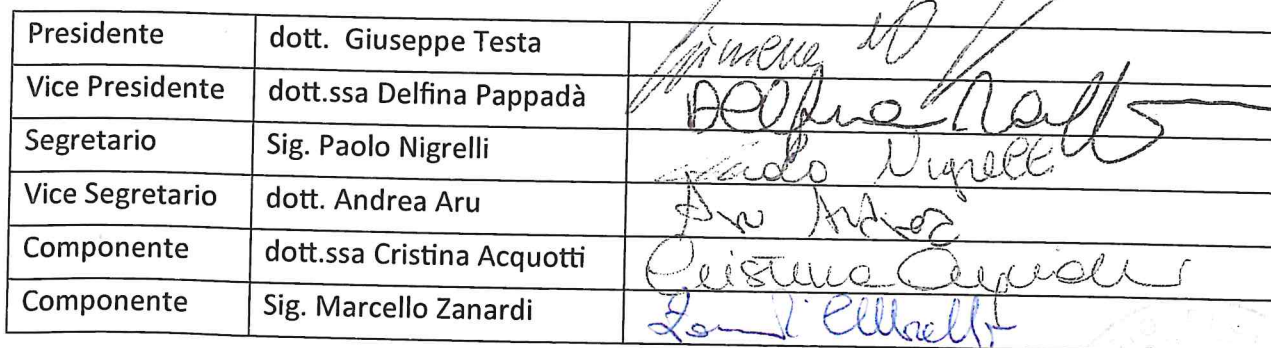 Presidente dott. Giuseppe Testa
Vice Presidente dott.ssa Delfina Pappadà Delfina
Segretario Sig. Paolo Nigrelli Paolo Nigrelli
Vice Segretario dott. Andrea Aru Aru Andrea
Componente dott.ssa Cristina Acquotti Cristina Acquotti
Componente Sig. Marcello Zanardi